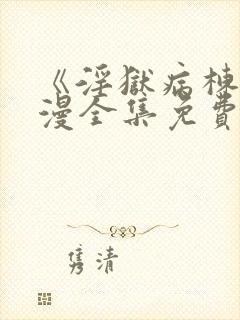 《淫獄病棟
漫全集免費
隽清